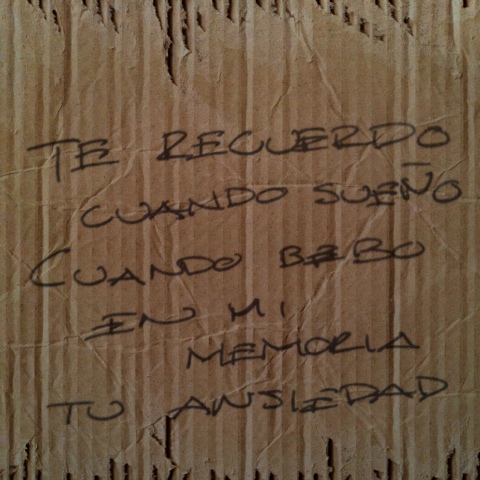 TE RECUERDO
CUANDO SUEÑO
CUANDO BEBO
EN MI
MEMORIA
TU ANSIEDAD